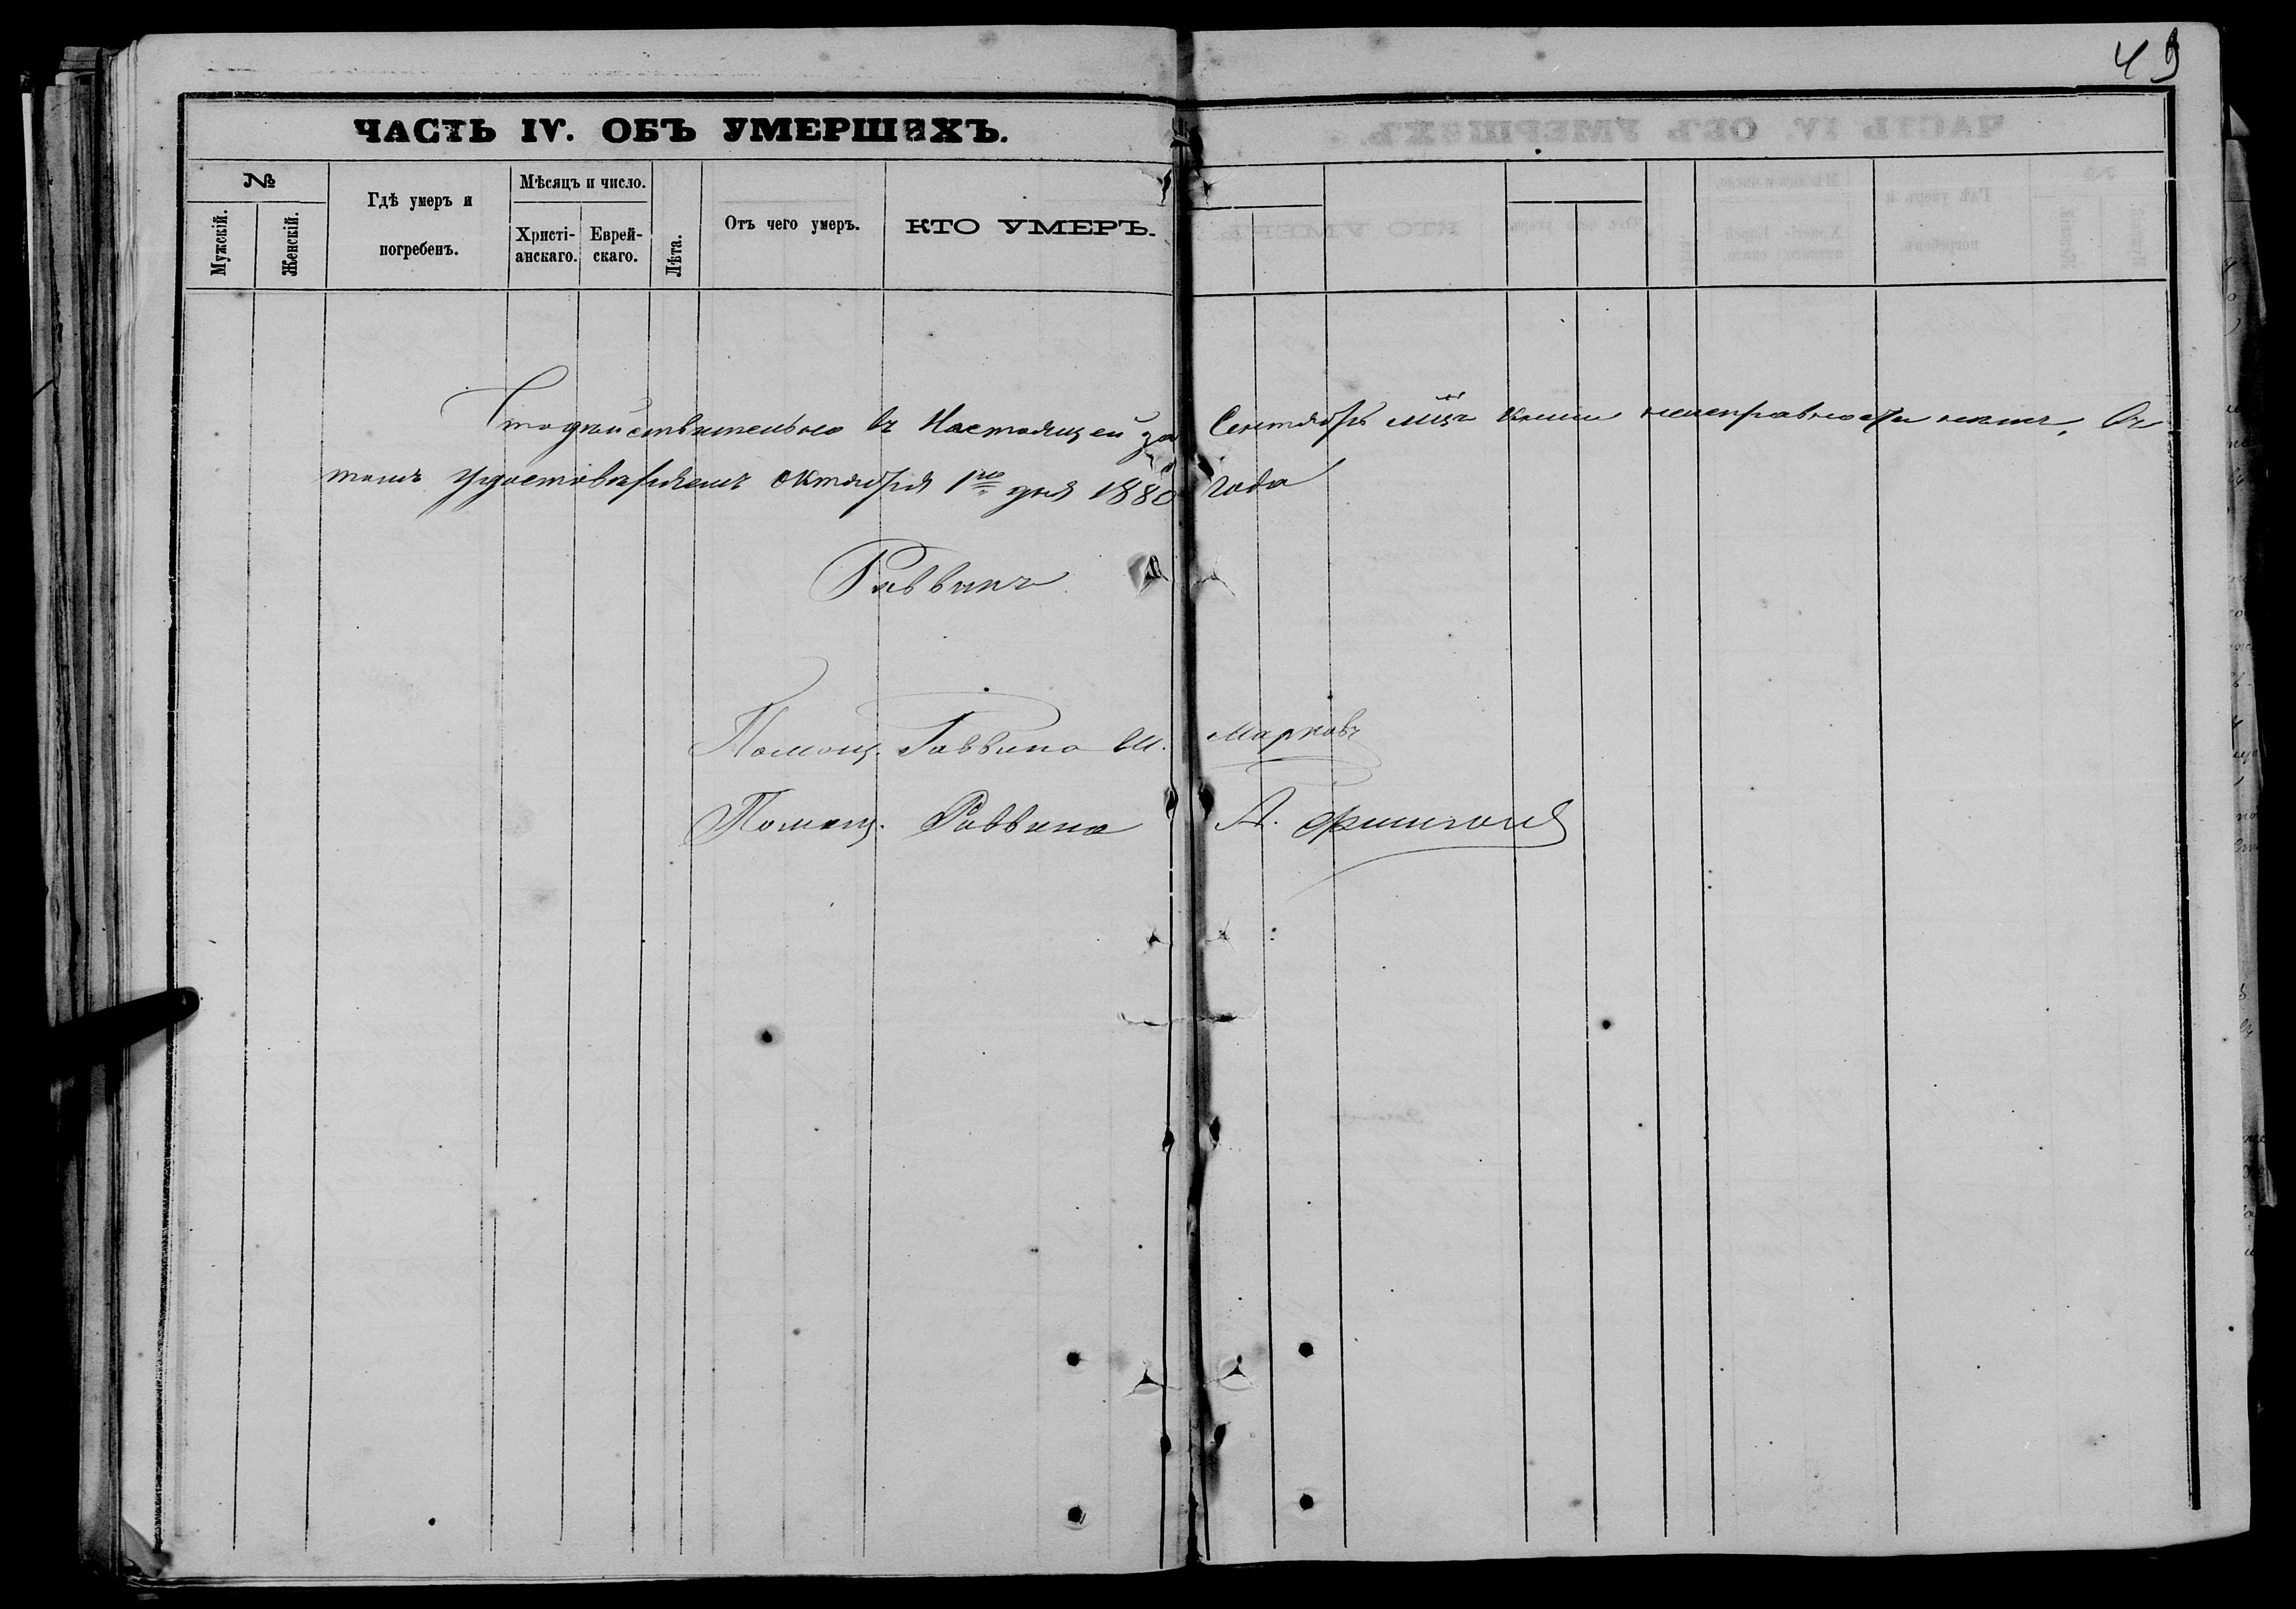 49
ЧАСТЬ IV. ОБЪ УМЕРШИХЪ.
№
Мужскій.
Женскій.
Гдѣ умеръ и
погребенъ.
Мѣсяцъ и число.
Христі-
анскаго.
Еврей-
скаго.
Лѣта.
Отъ чего умеръ.
КТО УМЕРЪ.
Что дѣйствительно въ настоящей за Сентябрь мцъ книги неисправности нетъ, въ
томъ удостовѣряемъ Октября 1го дня 1880 года
Раввинъ
Помощ. Раввина М. Марковъ
Помощ. Раввина А.